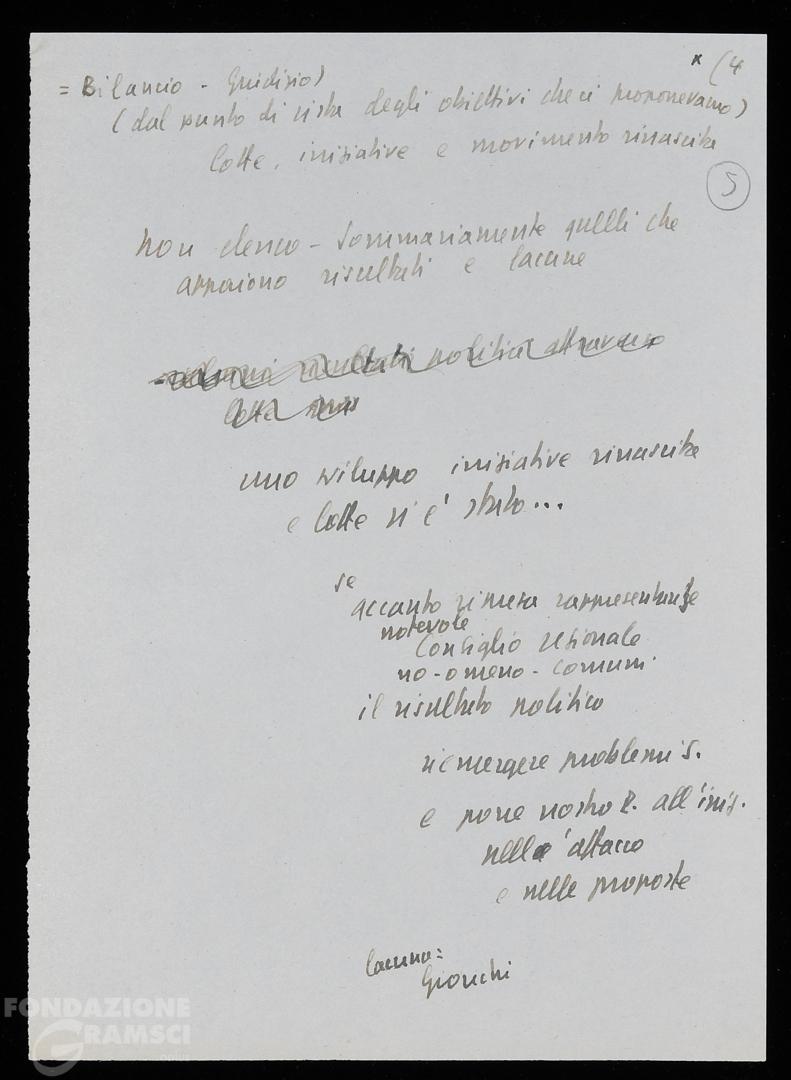 * (4
= Bilancio - Giudizio)
(dal punto di vista degli obiettivi che ci proponevamo)
lotte, iniziative e movimento rinascita
5
non elenco - sommariamente quelli che
appaiono risultati e lacune
risultati politici attraverso
lotte
uno sviluppo iniziative rinascita
e lotte vi è stato...
se
accanto ripresa rappresentanze
notevole
Consiglio regionale
no - o meno - comuni
il risultato politico
riemergere problemi S.
e porre nostro P. all'iniz.
nell'attacco
e nelle proposte
lacuna:
FONDAZIONE
GRAMSCI
onlus